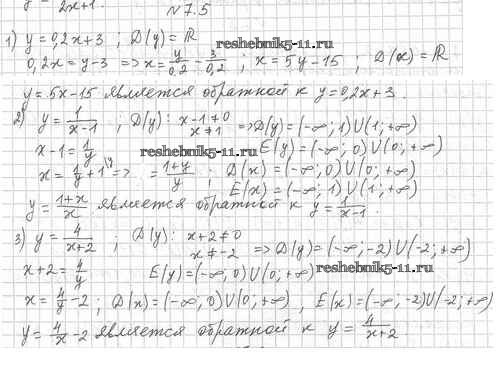 y = 2x+1.
N 7.5
1) y = 0,2x+3 ; D(y) = ℝ
reshebnik5-11.ru
0,2x = y-3 => x = y/0,2 - 3/0,2 ; x = 5y-15 ; D(x) = ℝ
y = 5x-15 является обратной к y = 0,2x+3.
2) y = 1/(x-1) ; D(y): x-1≠0
x≠1 => D(y) = (-∞; 1)U(1; +∞)
x-1 = 1/y E(y) = (-∞; 0)U(0; +∞)
reshebnik5-11.ru
x = 1/y + 1\y => = (1+y)/y ; D(x) = (-∞; 0)U(0; +∞)
E(x) = (-∞; 1)U(1; +∞)
y = (1+x)/x является обратной к y = 1/(x-1).
3) y = 4/(x+2) ; D(y): x+2≠0
x≠-2 => D(y) = (-∞; -2)U(-2; +∞)
x+2 = 4/y E(y) = (-∞; 0)U(0; +∞)
reshebnik5-11.ru
x = 4/y - 2 ; D(x) = (-∞; 0)U(0; +∞) , E(x) = (-∞; -2)U(-2; +∞)
y = 4/x - 2 является обратной к y = 4/(x+2)